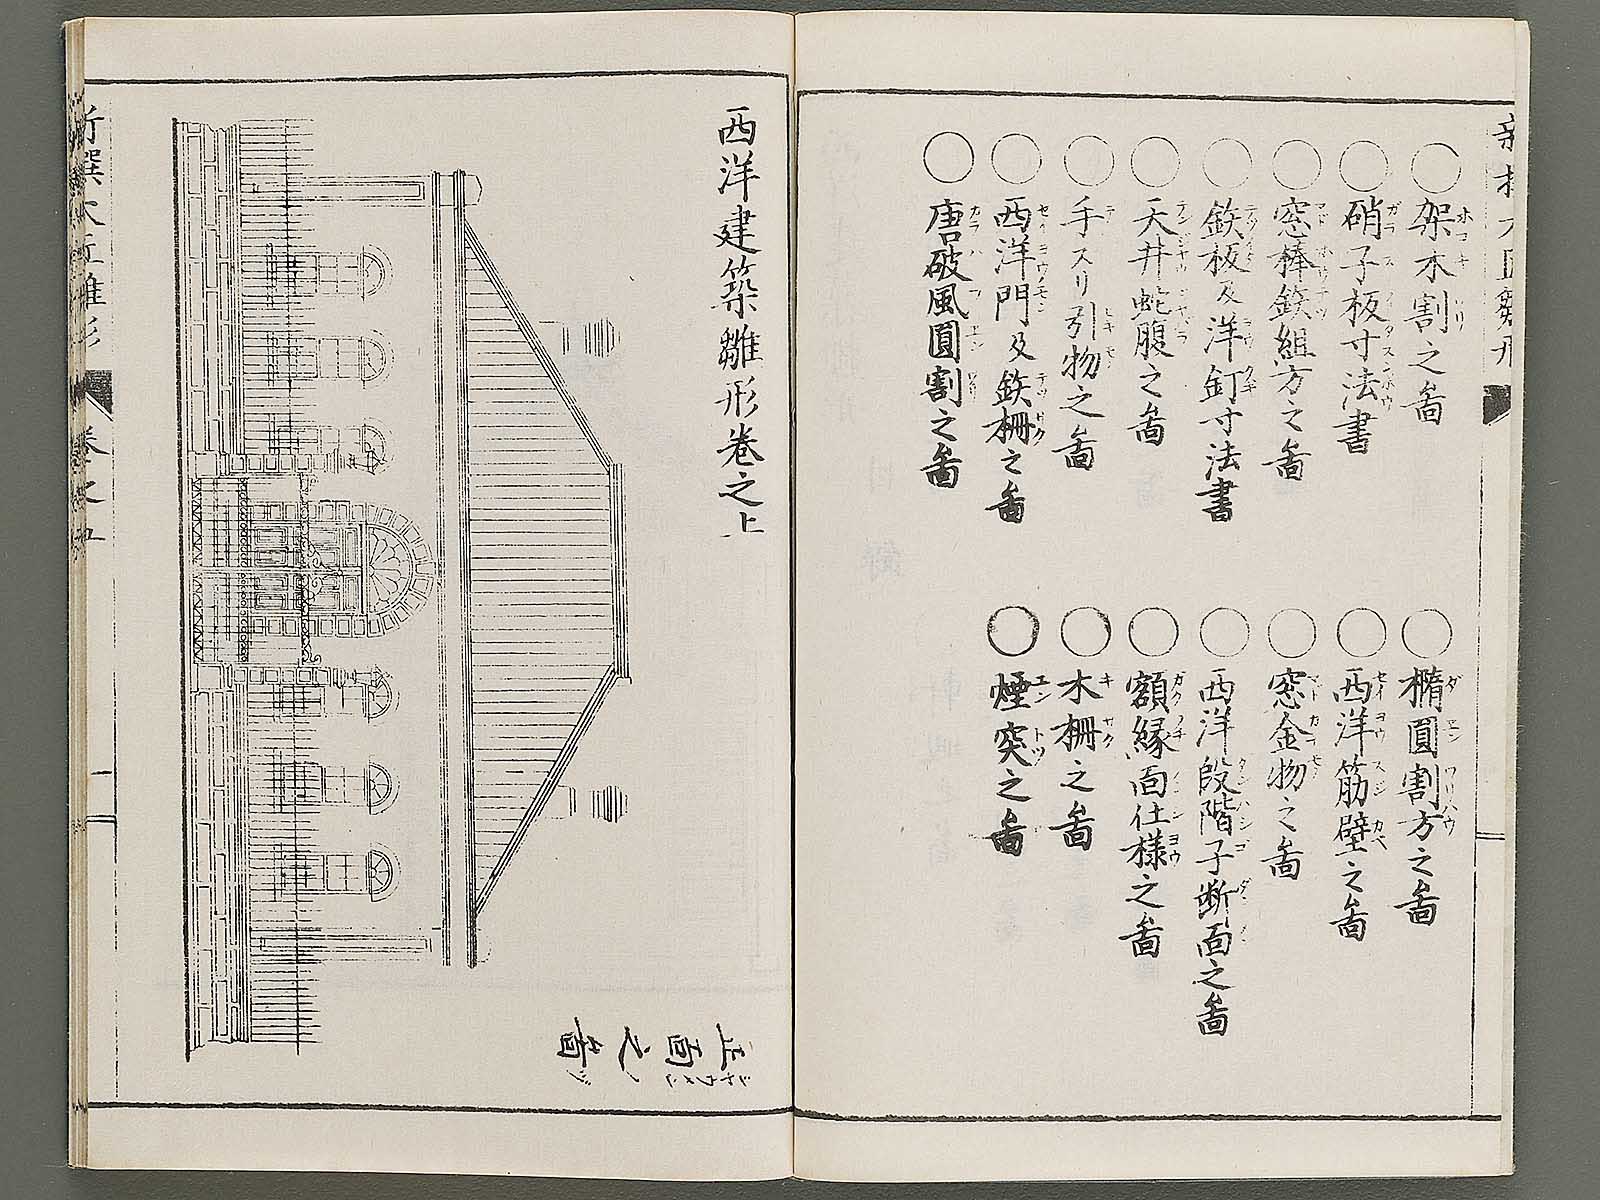 ○架木割之啚
○硝子板寸法書
○窓棒鉄組方之啚
○鉄板及洋釘寸法書
○天井蛇腹之啚
○手スリ引物之啚
○西洋門及鉄柵之啚
○唐破風圓割之啚
○楕圓割方之啚
○西洋筋壁之啚
○窓金物之啚
○西洋段階子断面之啚
○額縁面仕様之啚
○木柵之啚
○煙突之啚
西洋建築雛形巻之上
正面之啚
新撰大匠雛形
巻之五